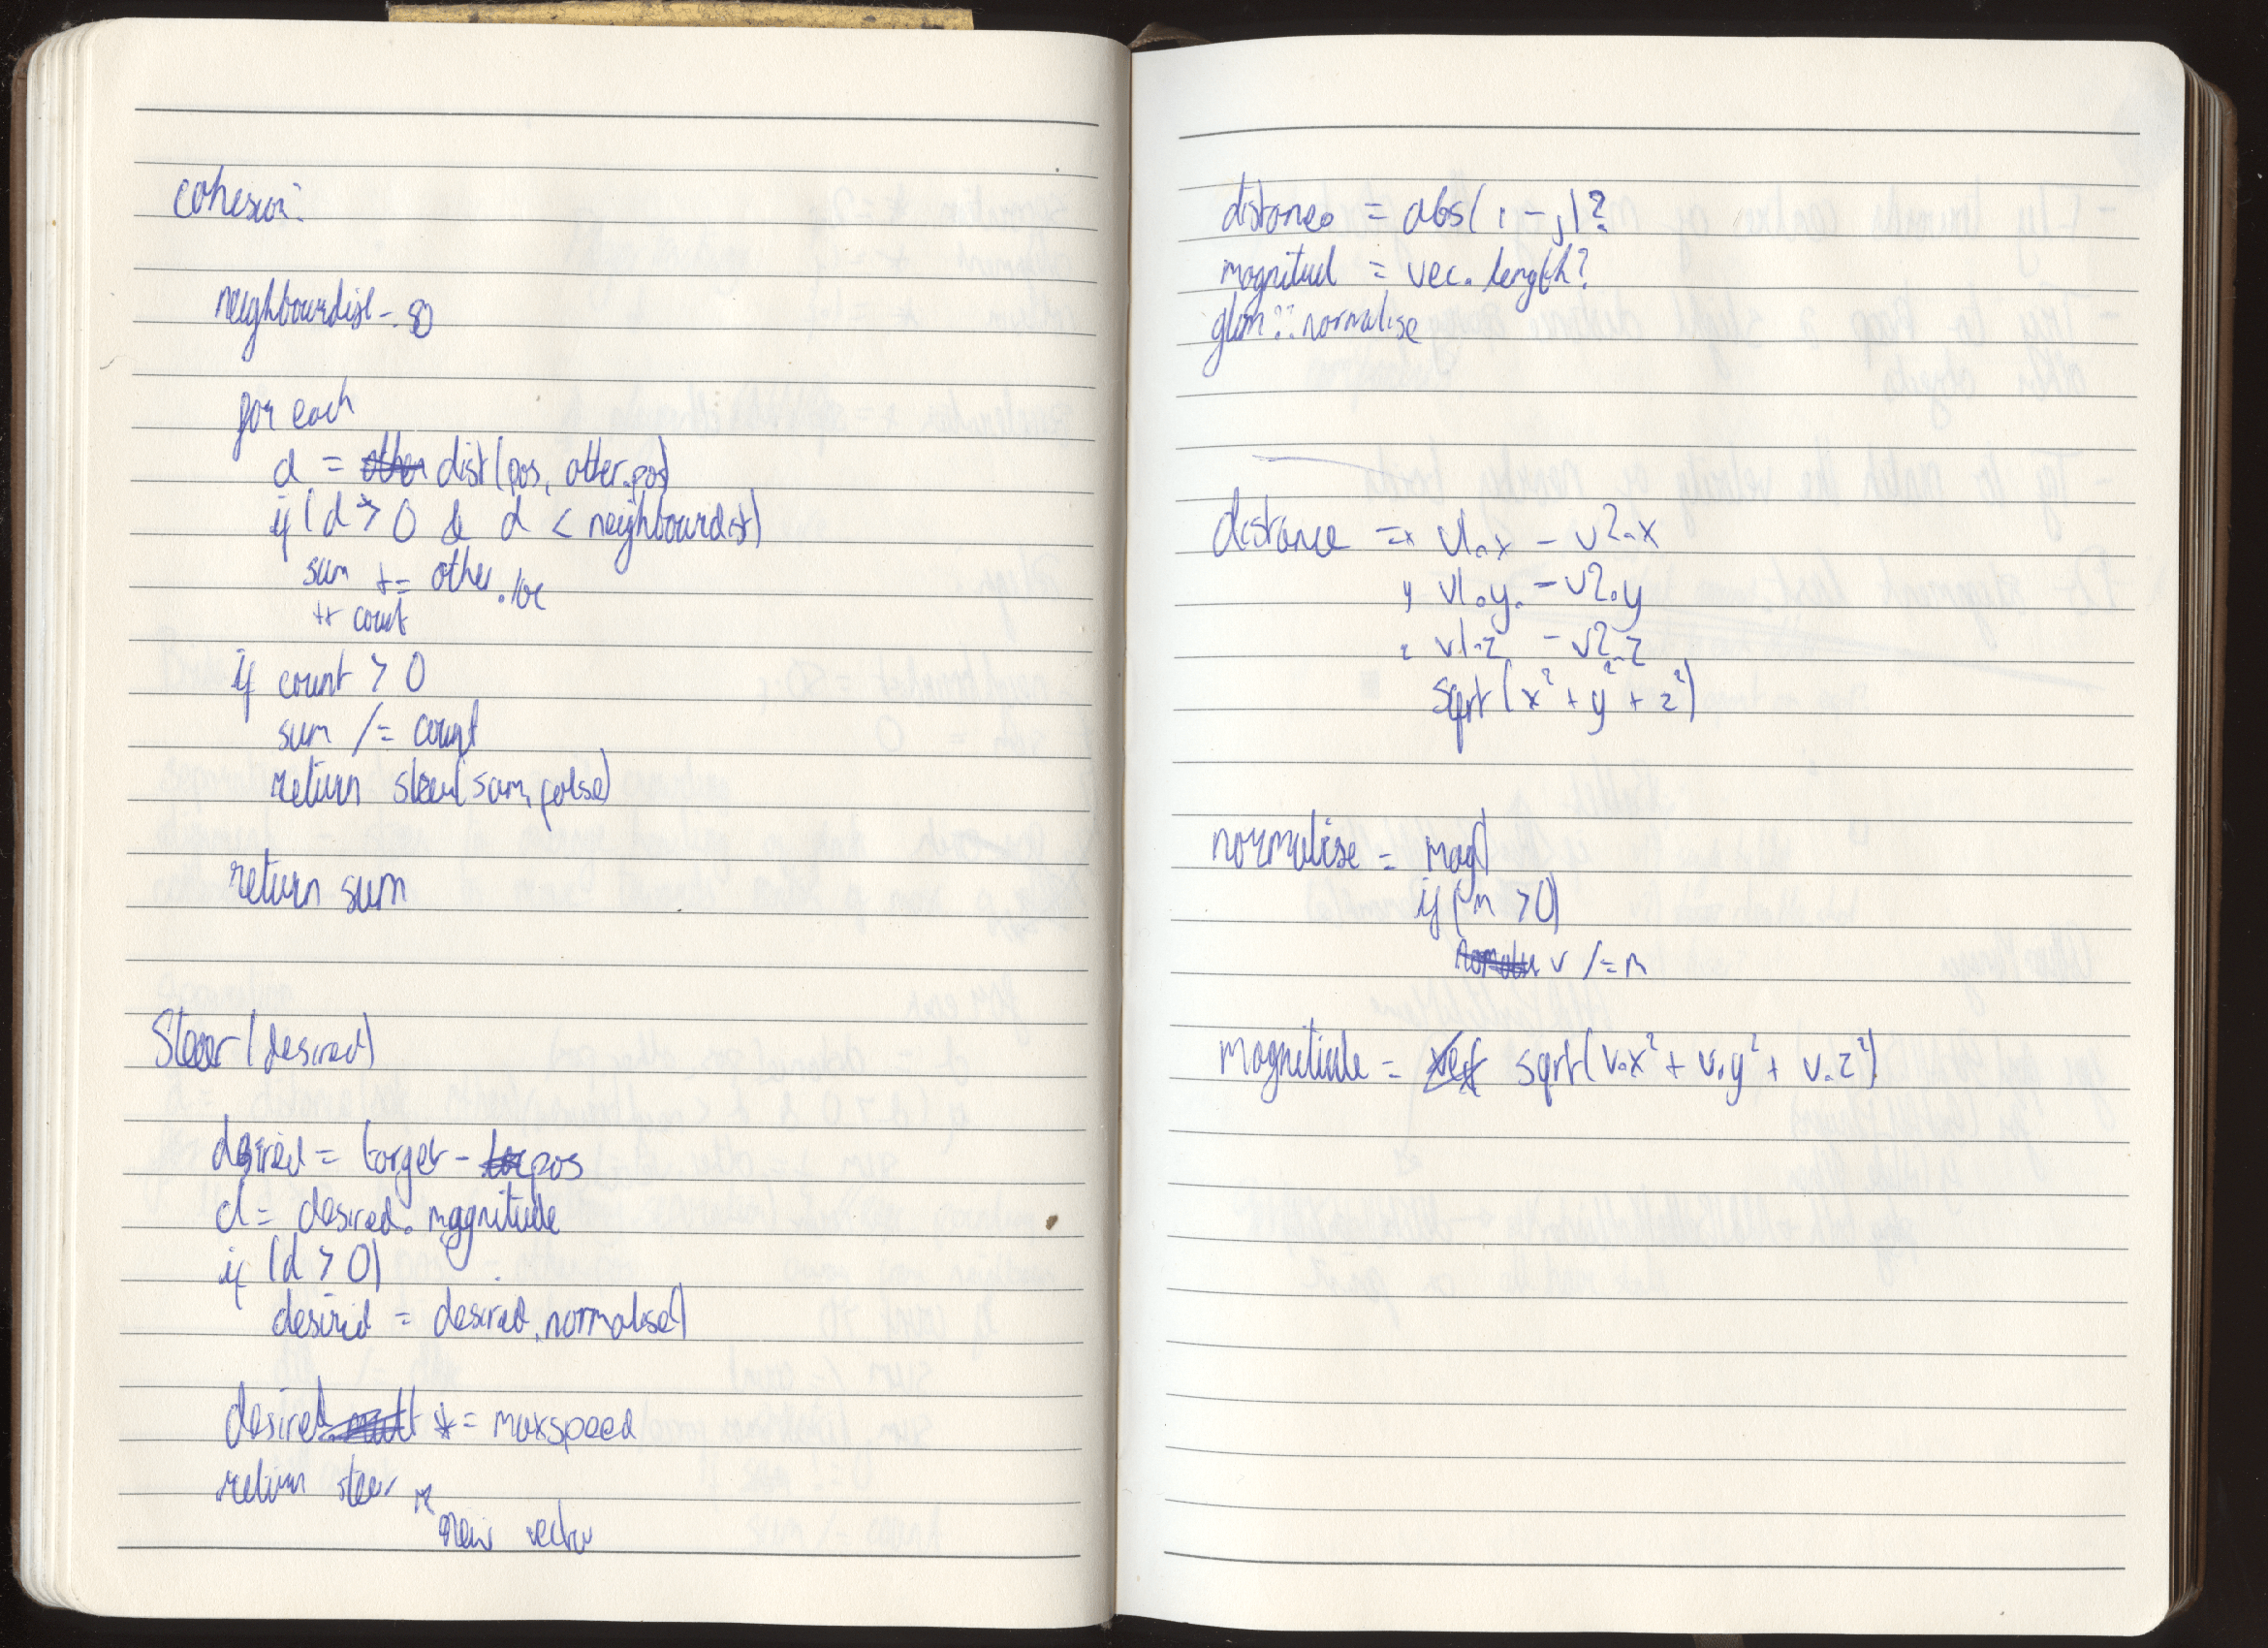 cohesion:
neighbourdist - 50
for each
d = dist(pos, other.pos)
if (d > 0 & d < neighbourdist)
sum += other.loc
++ count
if count > 0
sum /= count
return steer(sum, false)
return sum
Steer (desired)
desired = target - pos
d = desired. magnitude
if (d > 0)
desired = desired.normalise()
desired *= maxspeed
return steer
new vector
distance = abs( , - , )?
magnitud = vec. length?
glm::normalise
distance = x v1.x - v2.x
y v1.y. - v2.y
z v1.z - v2.z
sqrt(x² + y² + z²)
normalise = mag()
if (m > 0)
v /= m
magnitude = sqrt(v.x² + v.y² + v.z²)